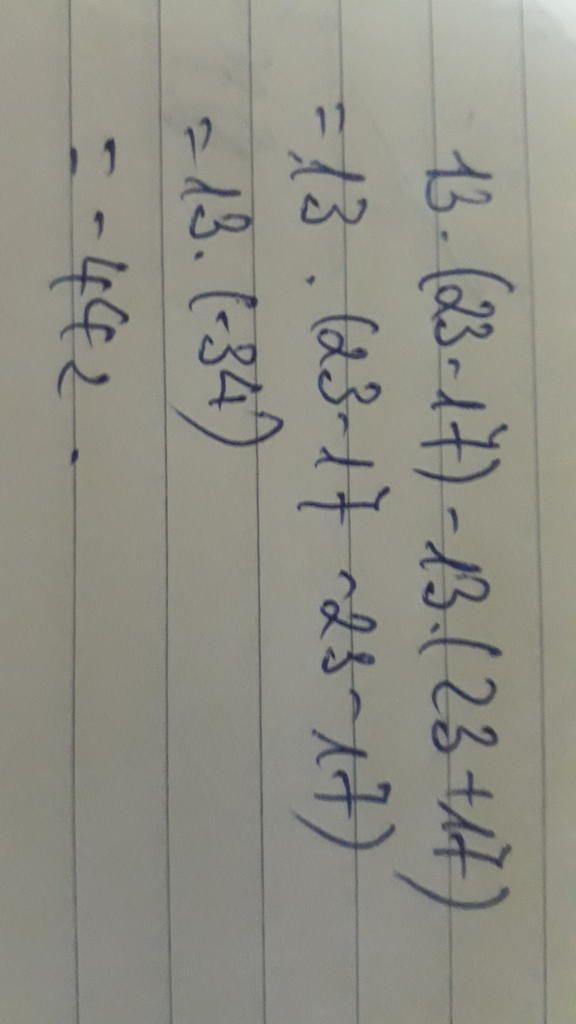 13.(23-17)-13.(23+17)
=13.(23-17-23-17)
=13.(-34)
=-442.